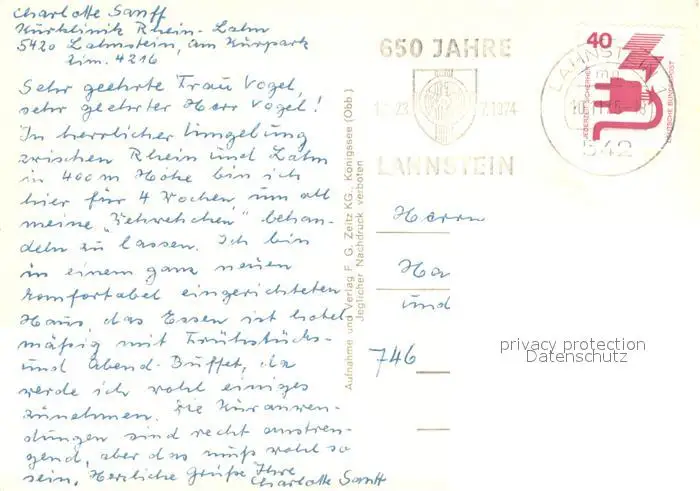 Charlotte Sanff
Kurklinik Rhein-Lahn
5420 Lahnstein, am Kurpark
Zim. 4216
Sehr geehrte Frau Vogel,
sehr geehrter Herr Vogel!
In herrlicher Umgebung
zwischen Rhein und Lahn
in 400 m Höhe bin ich
hier für 4 Wochen, um all
meine „Wehwehchen" behan-
deln zu lassen. Ich bin
in einem ganz neuen
komfortabel eingerichteten
Haus, das Essen ist hotel
mäßig mit Frühstücks-
und Abend-Buffet, da
werde ich wohl einiges
zunehmen. Die Kuranwen-
dungen sind recht anstren-
gend, aber das muß wohl so
sein. Herzliche Grüße Ihre
Charlotte Sanff
Aufnahme und Verlag F. G. Zeitz KG., Königssee (Obb.)
Jeglicher Nachdruck verboten
650 JAHRE
1974
LAHNSTEIN
LAHNSTEIN
542
40
JEDERZEIT SICHERHEIT
DEUTSCHE BUNDESPOST
Herrn
Ha
und
746
privacy protection
Datenschutz